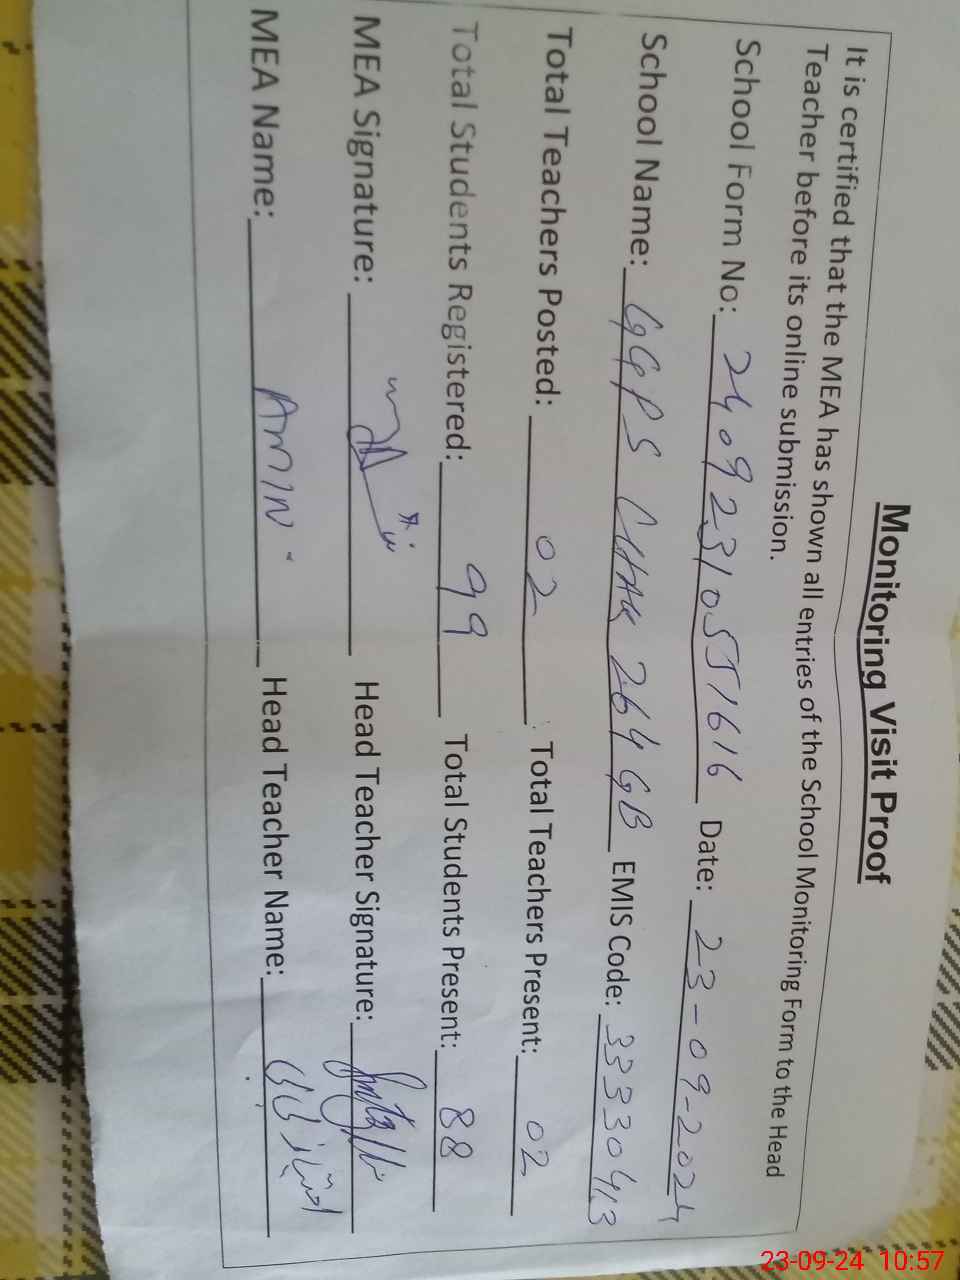 Monitoring Visit Proof
It is certified that the MEA has shown all entries of the School Monitoring Form to the Head
Teacher before its online submission.
School Form No: 24092310551616 Date: 23-09-2024
School Name: GGPS CHAK 264 GB EMIS Code: 33330413
Total Teachers Posted: 02 Total Teachers Present: 02
Total Students Registered: 99 Total Students Present: 88
MEA Signature: Head Teacher Signature:
MEA Name: AMIN Head Teacher Name:
23-09-24 10:57